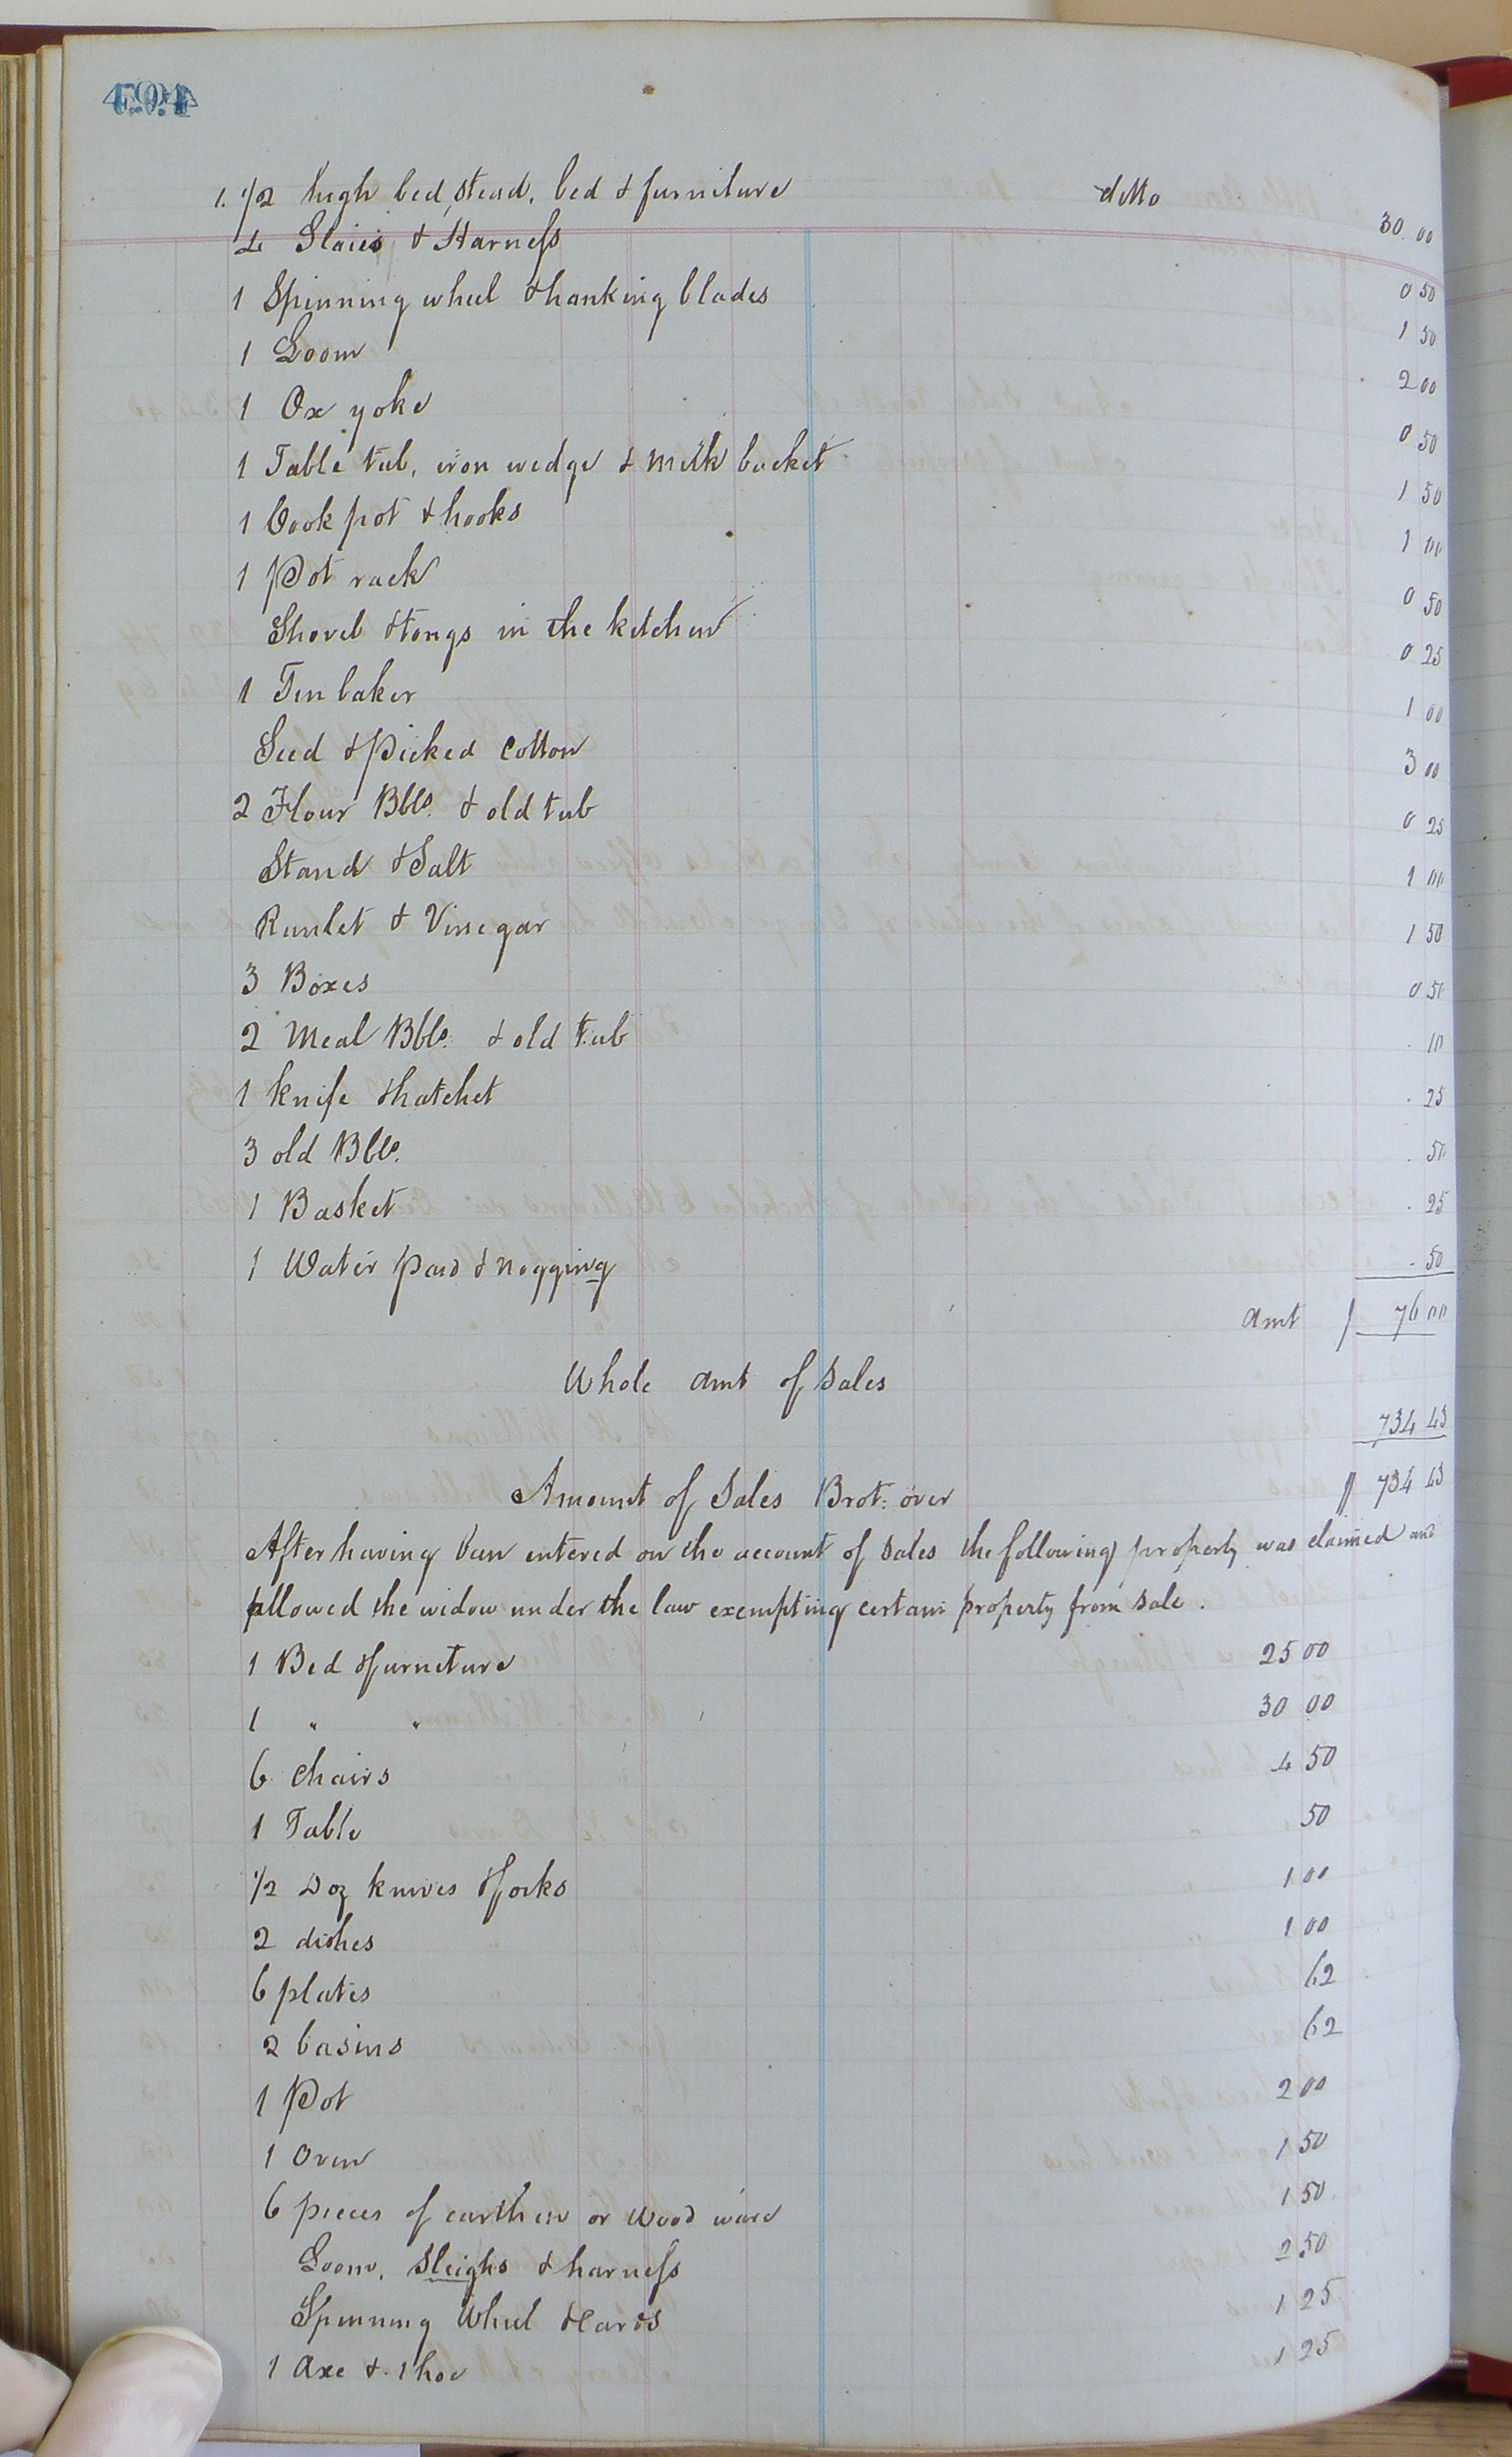 1. 1/2 high bed, stead, bed & furniture ditto 30.00
4 Slaies & Harness 0 50
1 Spinning wheel & hanking blades 1 50
1 Loom 2 00
1 Ox yoke 0 50
1 Table tub, iron wedge & milk bucket 1 50
1 Cook pot & hooks 1 00
1 Pot rack 0 50
Shovel & tongs in the kitchen 0 25
1 Tin baker 1 00
Seed & Picked Cotton 3 00
2 Flour Bbls. & old tub 0 25
Stand & Salt 1 00
Runlet & Vinegar 1 50
3 Boxes 0 50
2 Meal Bbls. & old tub . 10
1 knife & hatchet . 25
3 old Bbls. . 50
1 Basket . 25
1 Water & nogging . 50
Amt 76 00
Whole Amt of Sales
734 43
Amount of Sales Brot: over 734 43
After having been entered on the account of sales the following property was claimed and
allowed the widow under the law exempting certain property from sale.
1 Bed & furniture 25 00
1 " " 30 00
6 Chairs 4 50
1 Table 50
1/2 Doz knives & forks 1 00
2 dishes 1 00
6 plates 62
2 basins 62
1 Pot 2 00
1 Oven 1 50
6 pieces of earthen or wood ware 1 50
Loom, Sleighs & harness 2 50
Spinning Wheel & Cards 1 25
1 Axe & 1 hoe 1 25